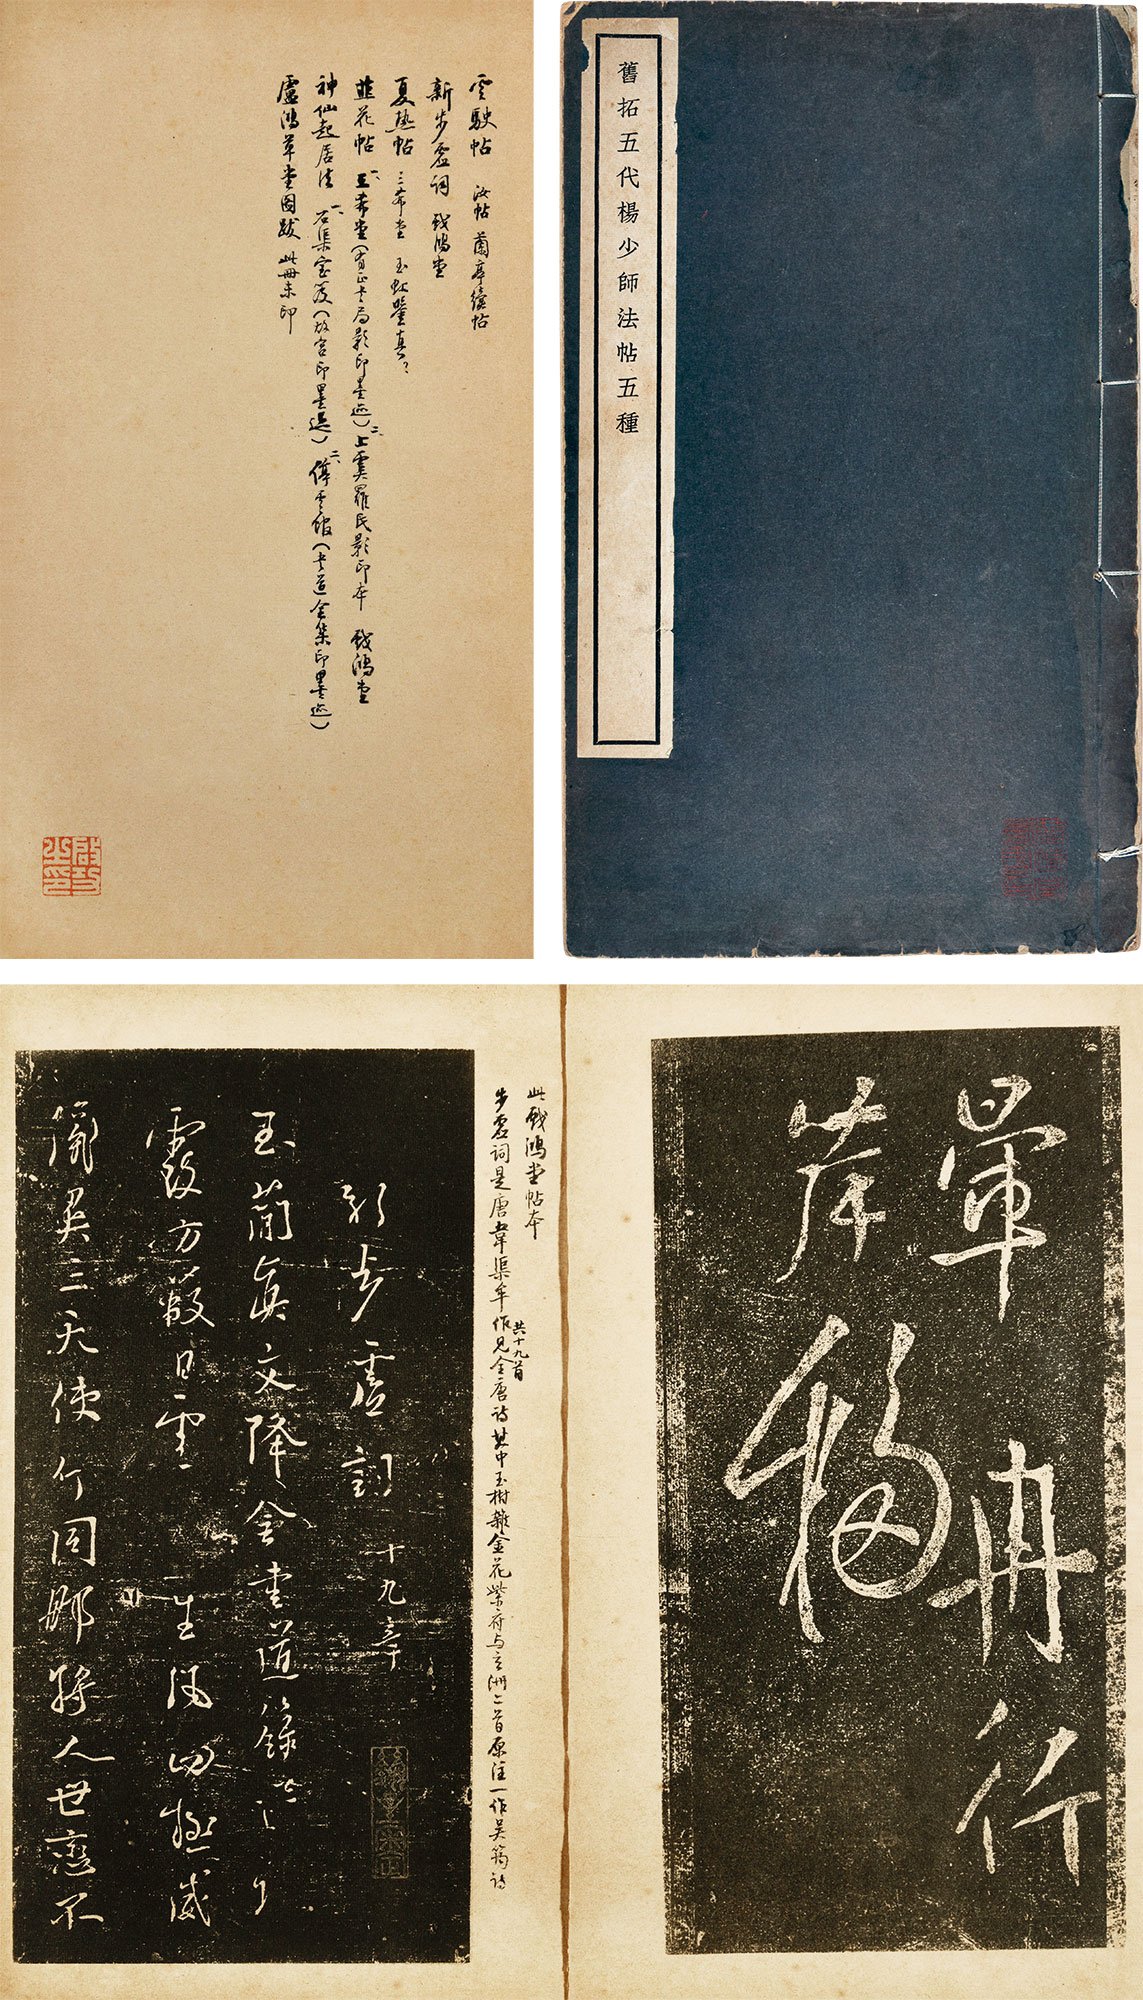 雲駛帖 汝帖 蘭亭續帖
新步虛詞 戲鴻堂
夏熱帖 三希堂 玉虹鑒真
韭花帖 一、三希堂(有正書局影印墨迹)二、上虞羅氏影印本 戲鴻堂
神仙起居法 一、石渠寶笈(故宮印墨迹)二、停雲館(書道全集印墨迹)
盧鴻草堂圖跋 此冊未印
啟功之印
舊拓五代楊少師法帖五種
暈冉行
岸
此戲鴻堂帖本
步虛詞是唐韋渠牟作共十九首見全唐詩其中玉樹雜金花紫府与玄洲二首原注一作吳筠詩
新步虛詞 十九章
玉簡真文降金書道籙
霞方蔽日雲 生
三天使 同 將人世戀不